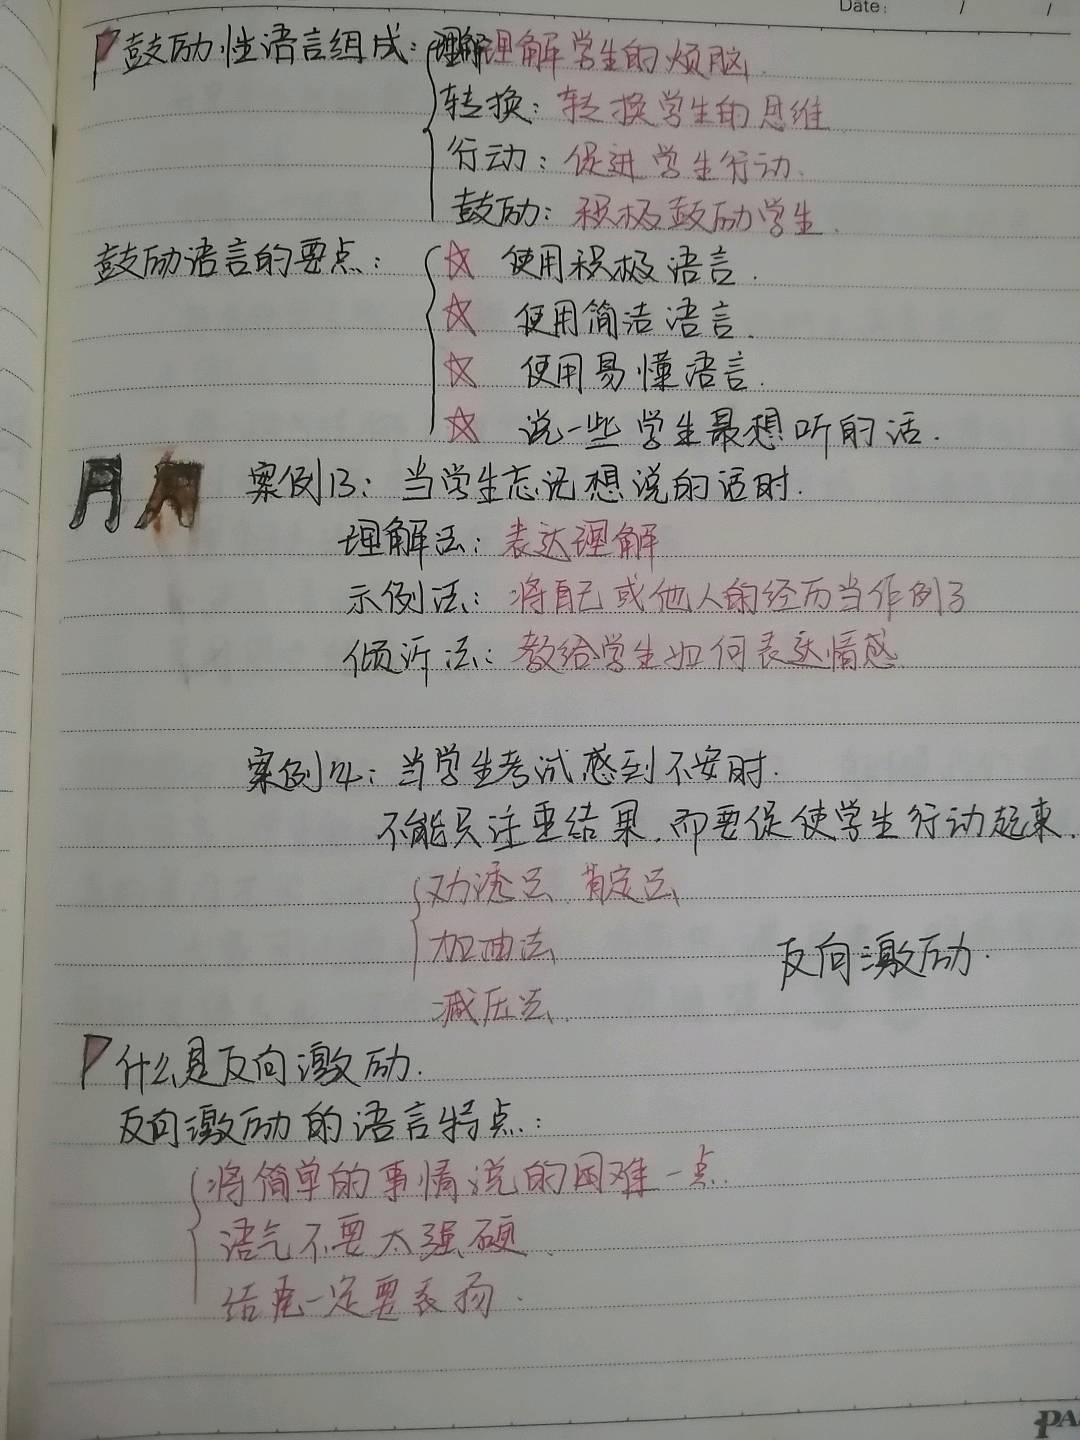 Date: / /
鼓励性语言组成：理解 理解学生的烦脑.
转换：转换学生的思维
行动：促进学生行动.
鼓励：积极鼓励学生.
鼓励语言的要点：☆ 使用积极语言.
☆ 使用简洁语言.
☆ 使用易懂语言.
☆ 说一些学生最想听的话.
案例13：当学生忘记想说的话时.
理解法：表达理解
示例法：将自己或他人的经历当作例子
倾诉法：教给学生如何表达情感
案例14：当学生考试感到不安时.
不能只注重结果，而要促使学生行动起来.
劝诱法 肯定法
加油法
反向激励.
减压法.
什么是反向激励.
反向激励的语言特点：
将简单的事情说的困难一点.
语气不要太强硬.
结尾一定要表扬.
PA